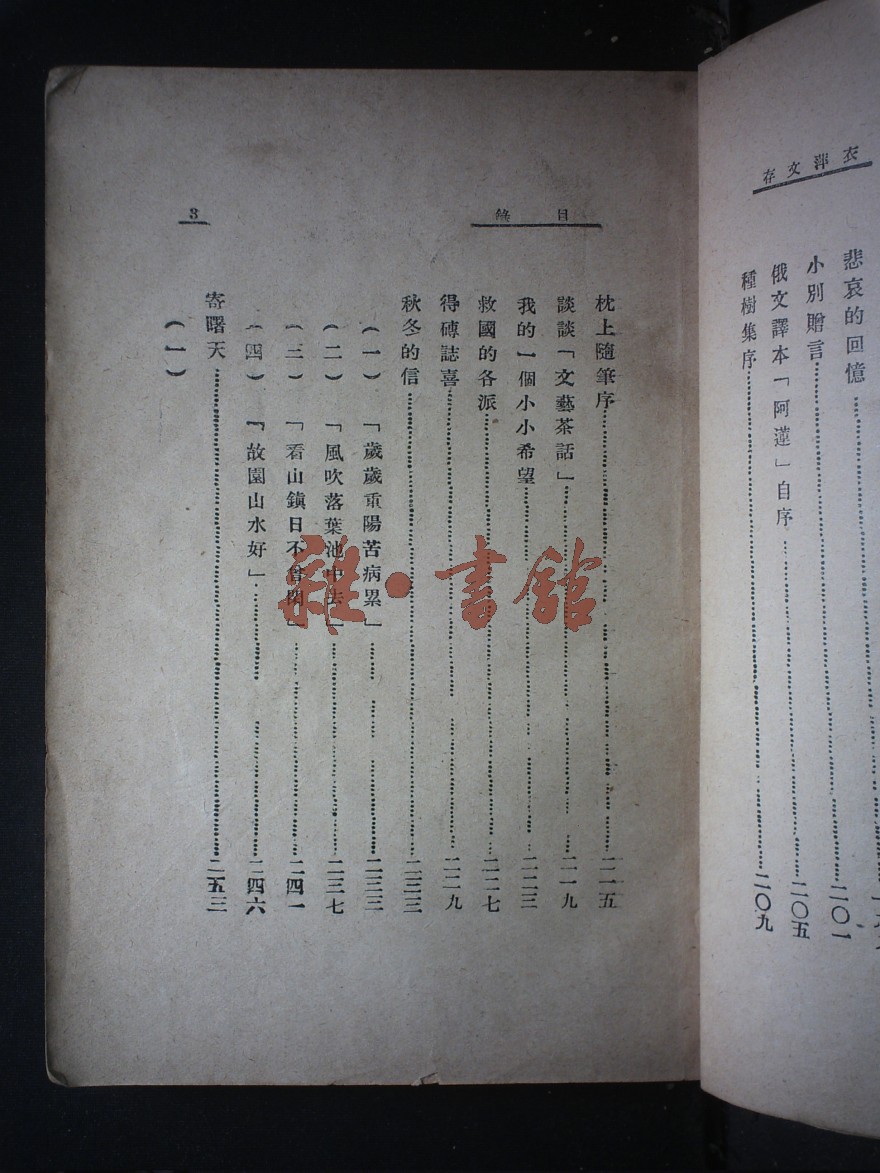 衣萍文存
悲哀的回憶
小別贈言 二〇一
俄文譯本「阿蓮」自序 二〇五
種樹集序 二〇九
目錄
3
枕上隨筆序 二一五
談談「文藝茶話」 二一九
我的一個小小希望 二二三
救國的各派 二二七
得磚誌喜 二二九
秋冬的信 二三三
(一) 「歲歲重陽苦病累」 二三三
(二) 「風吹落葉池中去」 二三七
(三) 「看山鎮日不」 二四一
(四) 「故園山水好」 二四六
寄曙天 二五三
(一)
雜·書館